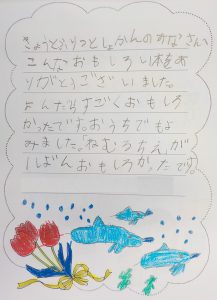 きょうとふりつとしょかんのみなさんへ
こんなおもしろい本をあ
りがとうございました。
よんだらすごくおもしろ
かったです。おうちでもよ
みました。「ねむろちえ」が
いちばんおもしろかったです。